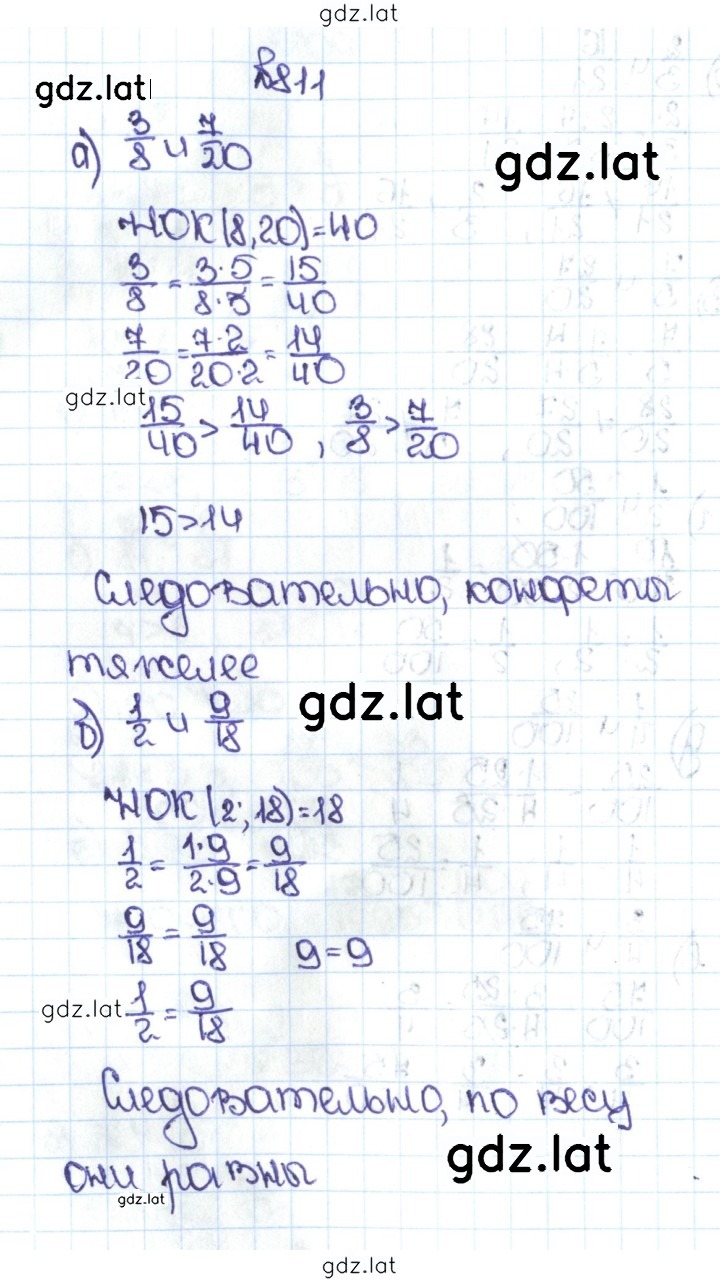 gdz.lat
№811
gdz.lat
а) 3/8 и 7/20
gdz.lat
НОК(8,20)=40
3/8 = 3·5/8·5 = 15/40
7/20 = 7·2/20·2 = 14/40
gdz.lat
15/40 > 14/40 , 3/8 > 7/20
15>14
Следовательно, конфеты
тяжелее
gdz.lat
б) 1/2 и 9/18
НОК(2;18)=18
1/2 = 1·9/2·9 = 9/18
9/18 = 9/18 9=9
gdz.lat
1/2 = 9/18
Следовательно, по весу
gdz.lat
они равны
gdz.lat
gdz.lat